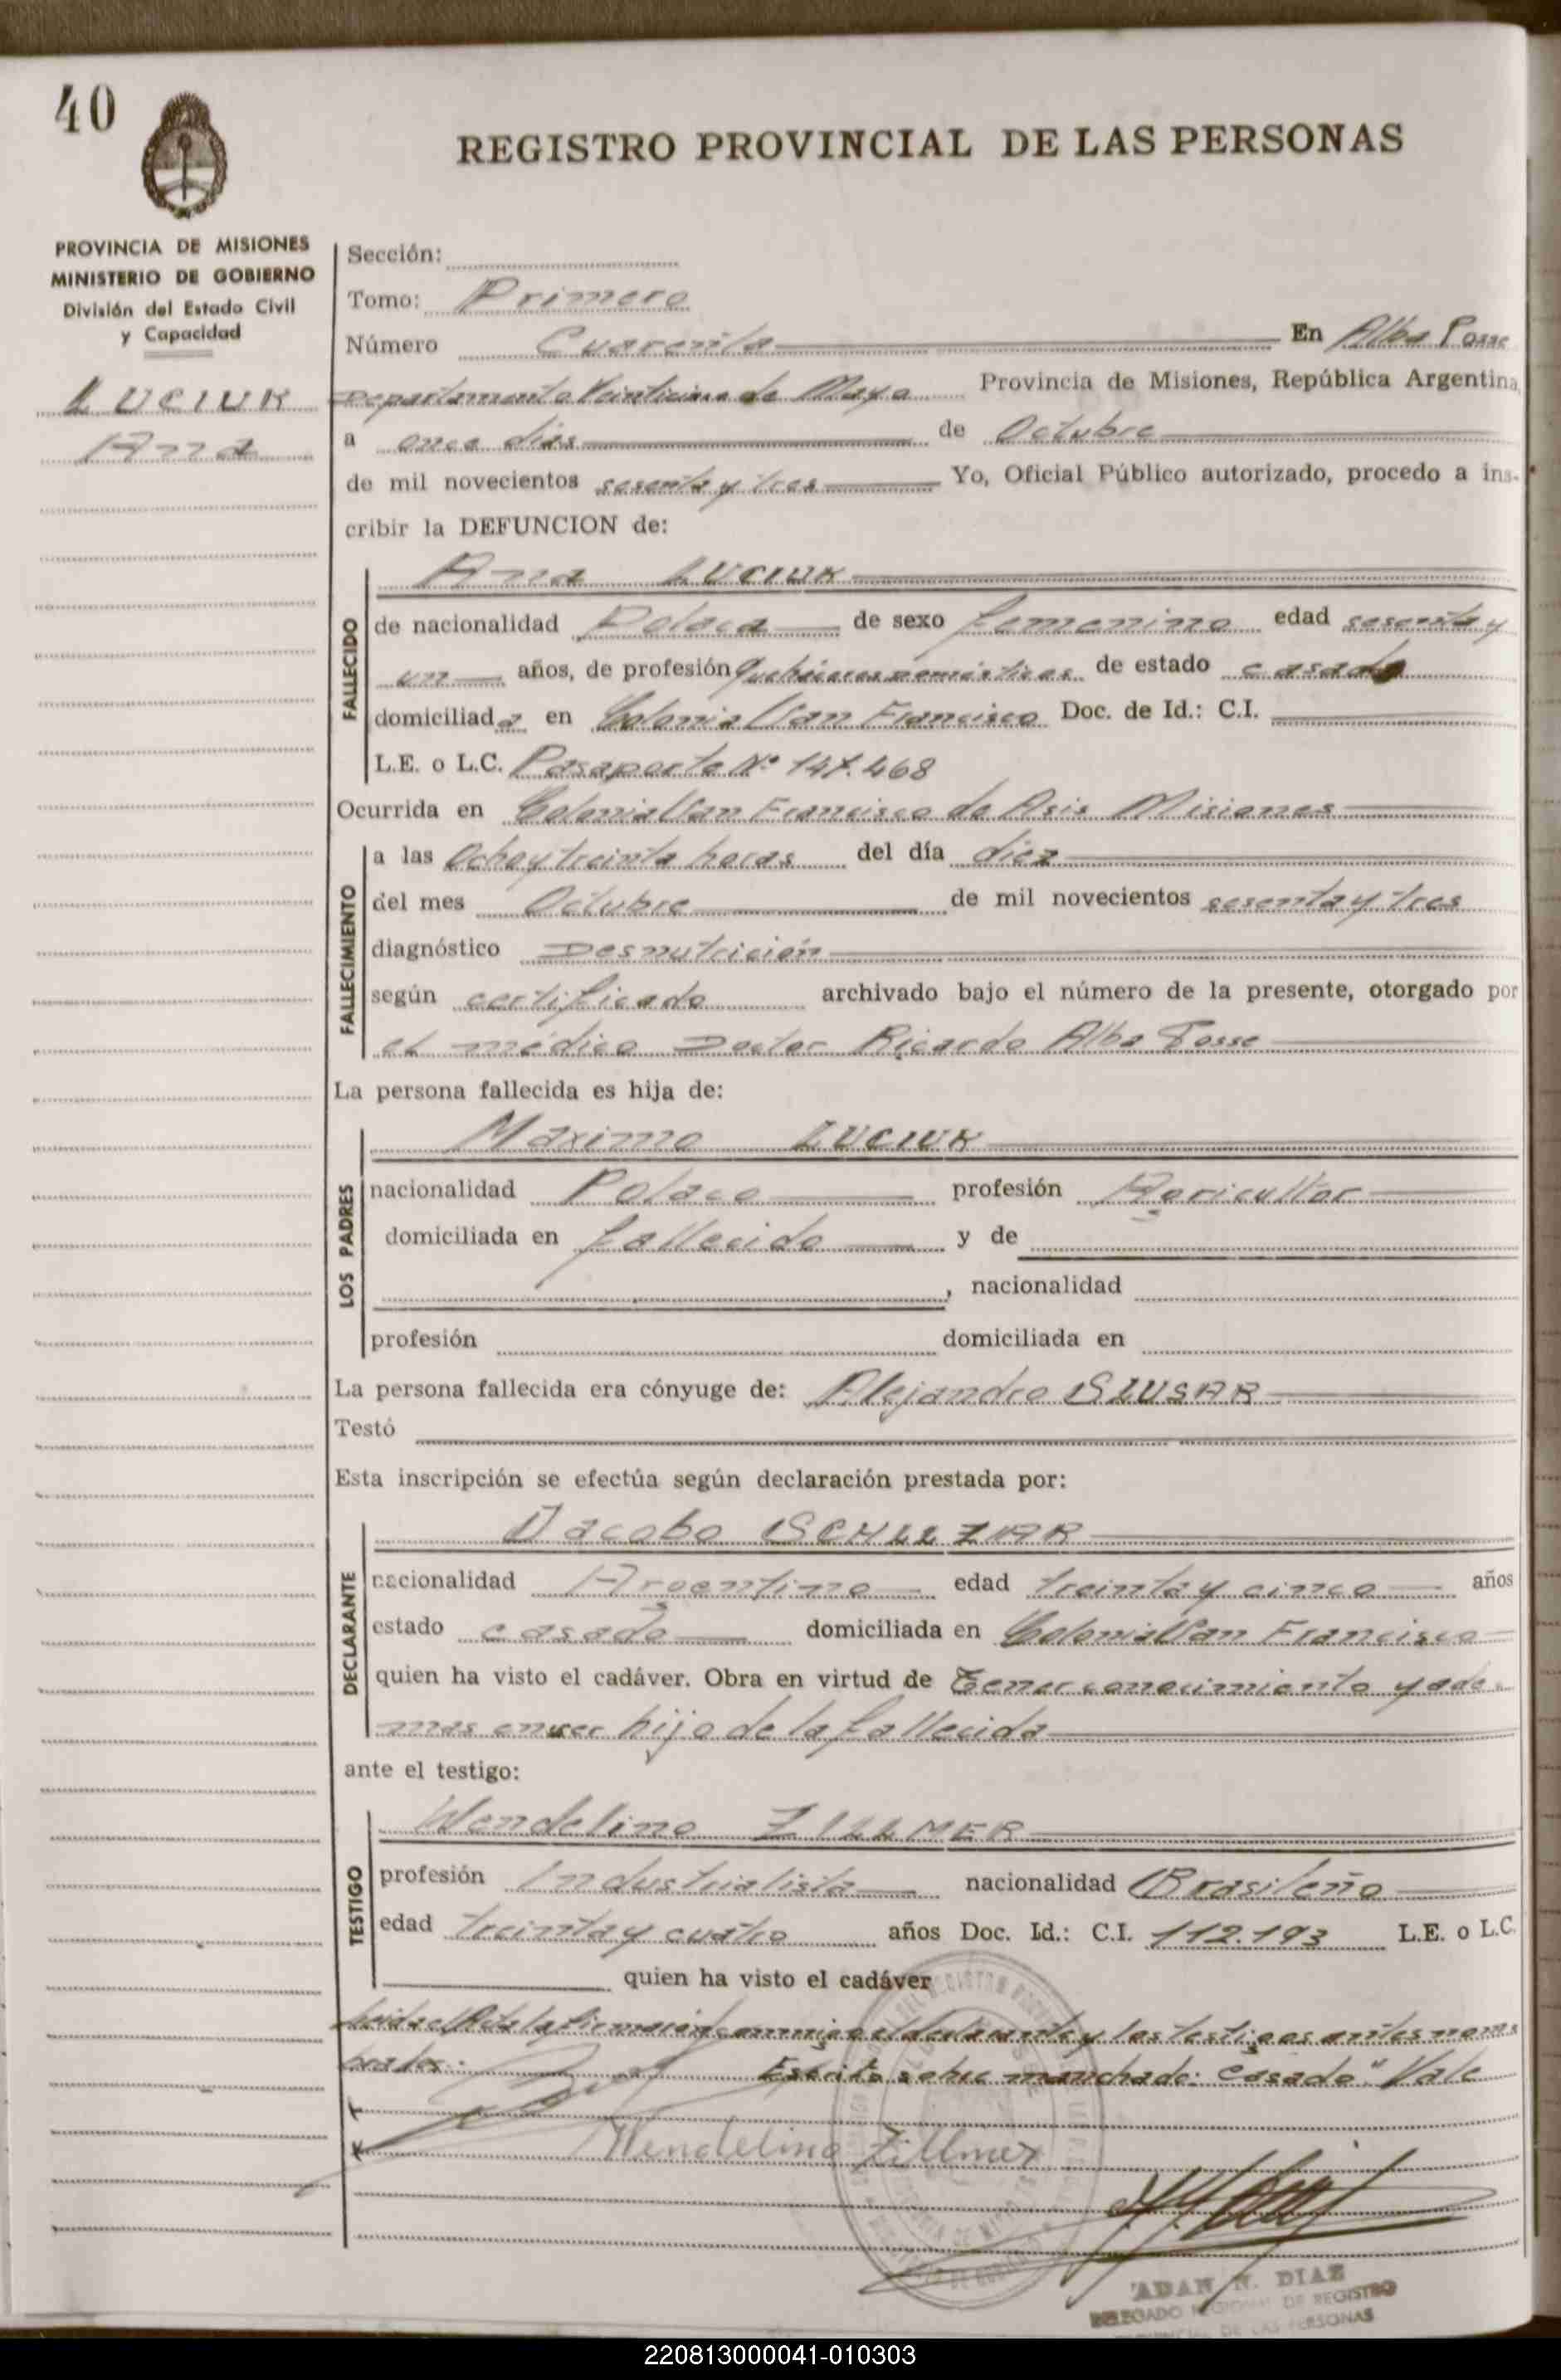 40
REGISTRO PROVINCIAL DE LAS PERSONAS
PROVINCIA DE MISIONES
MINISTERIO DE GOBIERNO
División del Estado Civil
y Capacidad
LUCIUK
Ana
Sección:
Tomo: Primero
Número Cuarenta En Alba Posse
Departamento Veinticinco de Mayo Provincia de Misiones, República Argentina
a once días de Octubre
de mil novecientos sesenta y tres Yo, Oficial Público autorizado, procedo a ins-
cribir la DEFUNCION de:
FALLECIDO
Ana LUCIUK
de nacionalidad Polaca de sexo femenino edad sesenta y
un años, de profesión Quehaceres domésticos de estado casada
domiciliada en Colonia San Francisco Doc. de Id.: C.I.
L.E. o L.C. Pasaporte Nº 147.468
Ocurrida en Colonia San Francisco de Asis Misiones
FALLECIMIENTO
a las Ocho y treinta horas del día diez
del mes Octubre de mil novecientos sesenta y tres
diagnóstico Desnutrición
según certificado archivado bajo el número de la presente, otorgado por
el médico Doctor Ricardo Alba Posse
La persona fallecida es hija de:
LOS PADRES
Maximo LUCIUK
nacionalidad Polaco profesión Agricultor
domiciliada en fallecido y de
, nacionalidad
profesión domiciliada en
La persona fallecida era cónyuge de: Alejandro SLUSAR
Testó
Esta inscripción se efectúa según declaración prestada por:
DECLARANTE
Jacobo SCHLEZAR
nacionalidad Argentino edad treinta y cinco años
estado casado domiciliada en Colonia San Francisco
quien ha visto el cadáver. Obra en virtud de Tener conocimiento y ade-
mas en ser hijo de la fallecida
ante el testigo:
TESTIGO
Wendelino ZILLMER
profesión Industrialista nacionalidad Brasileño
edad treinta y cuatro años Doc. Id.: C.I. 112.193 L.E. o L.C.
quien ha visto el cadáver
Leida el Acta la firmarón conmigo el declarante y los testigos antes nom-
brados. Escrito sobre manchado: Casado" Vale
Wendelino Zillmer
ADAN N. DIAZ
DELEGADO REGIONAL DE REGISTRO
PROVINCIAL DE LAS PERSONAS
220813000041-010303